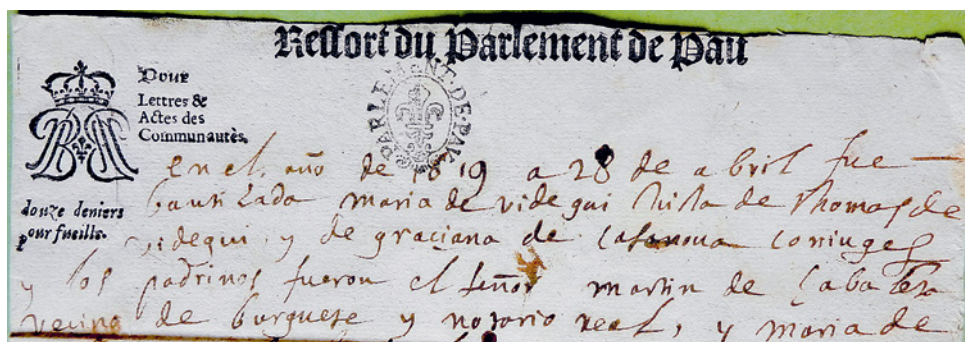 Ressort du Parlement de Pau
Pour
Lettres &
Actes des
Communautès,
PARLEMENT·DE·PAU
douze deniers
pour fueille.
en el año de 1619 a 28 de abril fue
bautizada maria de videgui hija de Thomas de
videgui y de graciana de Casanova coniuges
y los padrinos fueron el señor martin de
vecino de burguete y notario real, y maria de